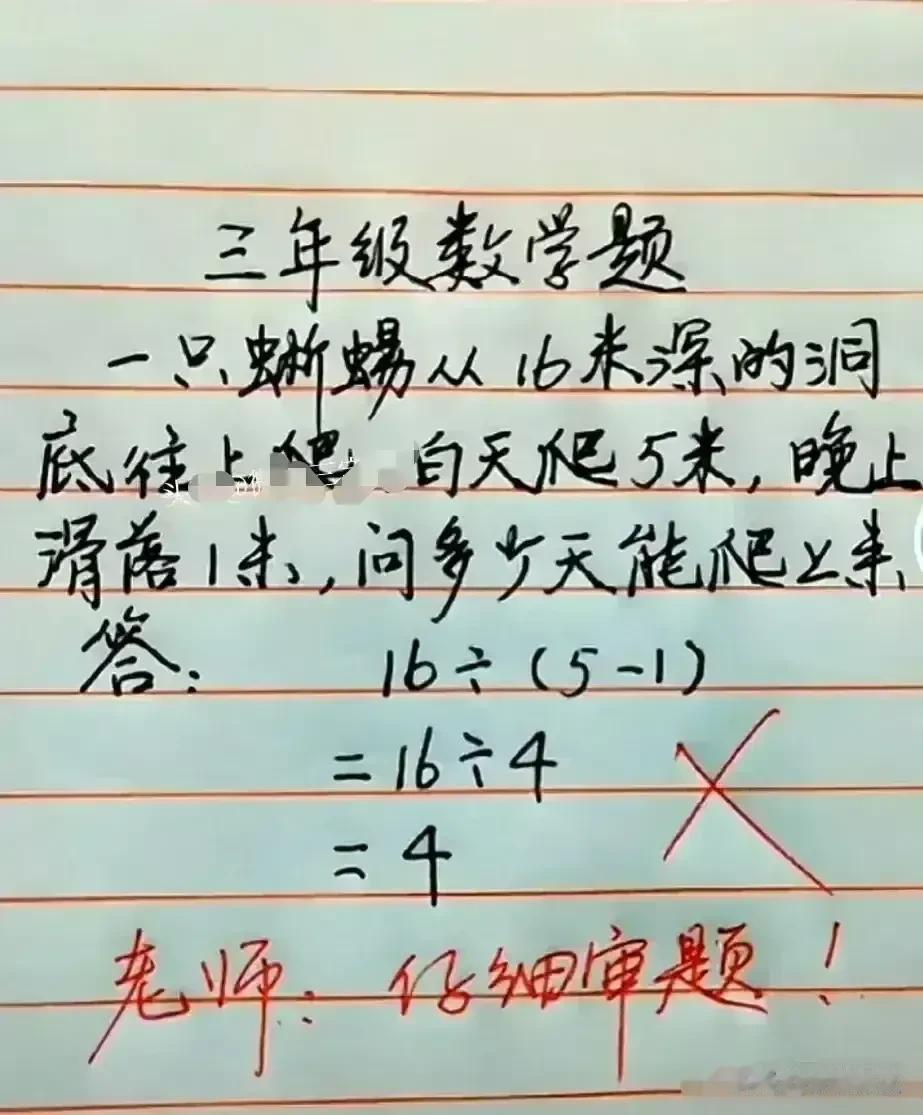 三年级数学题
一只蜥蜴从16米深的洞
底往上爬 白天爬5米,晚上
滑落1米,问多少天能爬上来
答: 16÷(5-1)
=16÷4
=4
老师:仔细审题!